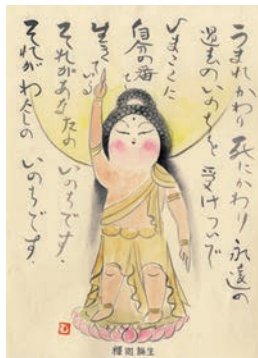 うまれかわり 死にかわり 永遠の
過去のいのちを 受けついで
いまここに
自分の番を
生きている
それがあなたの いのちです、
それがわたしの いのちです、
釋迦誕生